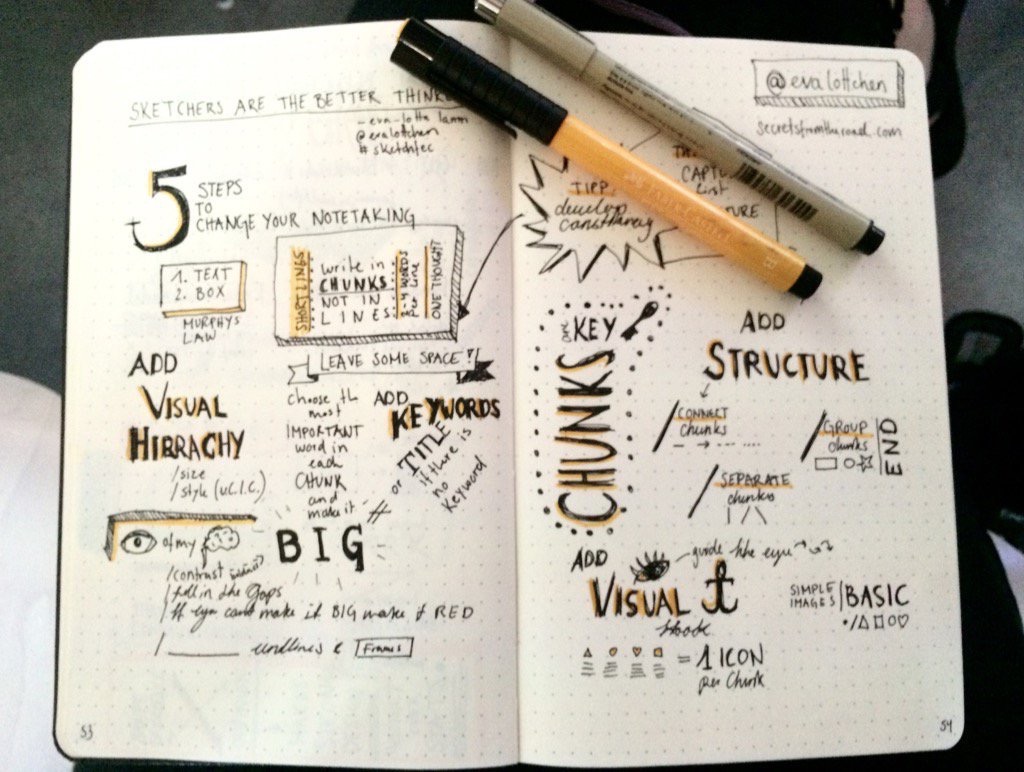 SKETCHERS ARE THE BETTER
- eva-lotta lamm
@evalottchen
# sketchtec
5 STEPS
TO
CHANGE YOUR NOTETAKING
1. TEXT
2. BOX
MURPHYS
LAW
SHORT LINES
write in
CHUNKS
NOT IN
LINES
2-4 WORDS
Per Line
ONE THOUGHT
LEAVE SOME SPACE!
ADD
VISUAL
HIERACHY
/size
/style (u.C.l.C.)
choose th
most
IMPORTANT
word in
each
CHUNK
and
make it
BIG
ADD
KEYWORDS
or TITLE
if there is
no
Keyword
#
of my
/contrast
/fill in the Gaps
/If you cant make it BIG make it RED
/ undlines &
Frames
53
@evalottchen
secretsfromtheroad.com
TIPP
develop
consistancy
CHUNKS
are KEY
ADD
STRUCTURE
/CONNECT
chunks
/GROUP
chunks
END
/SEPARATE
chunks
ADD
guide the eye
VISUAL
Hook
SIMPLE
IMAGES
/BASIC
= 1 ICON
per Chunk
54